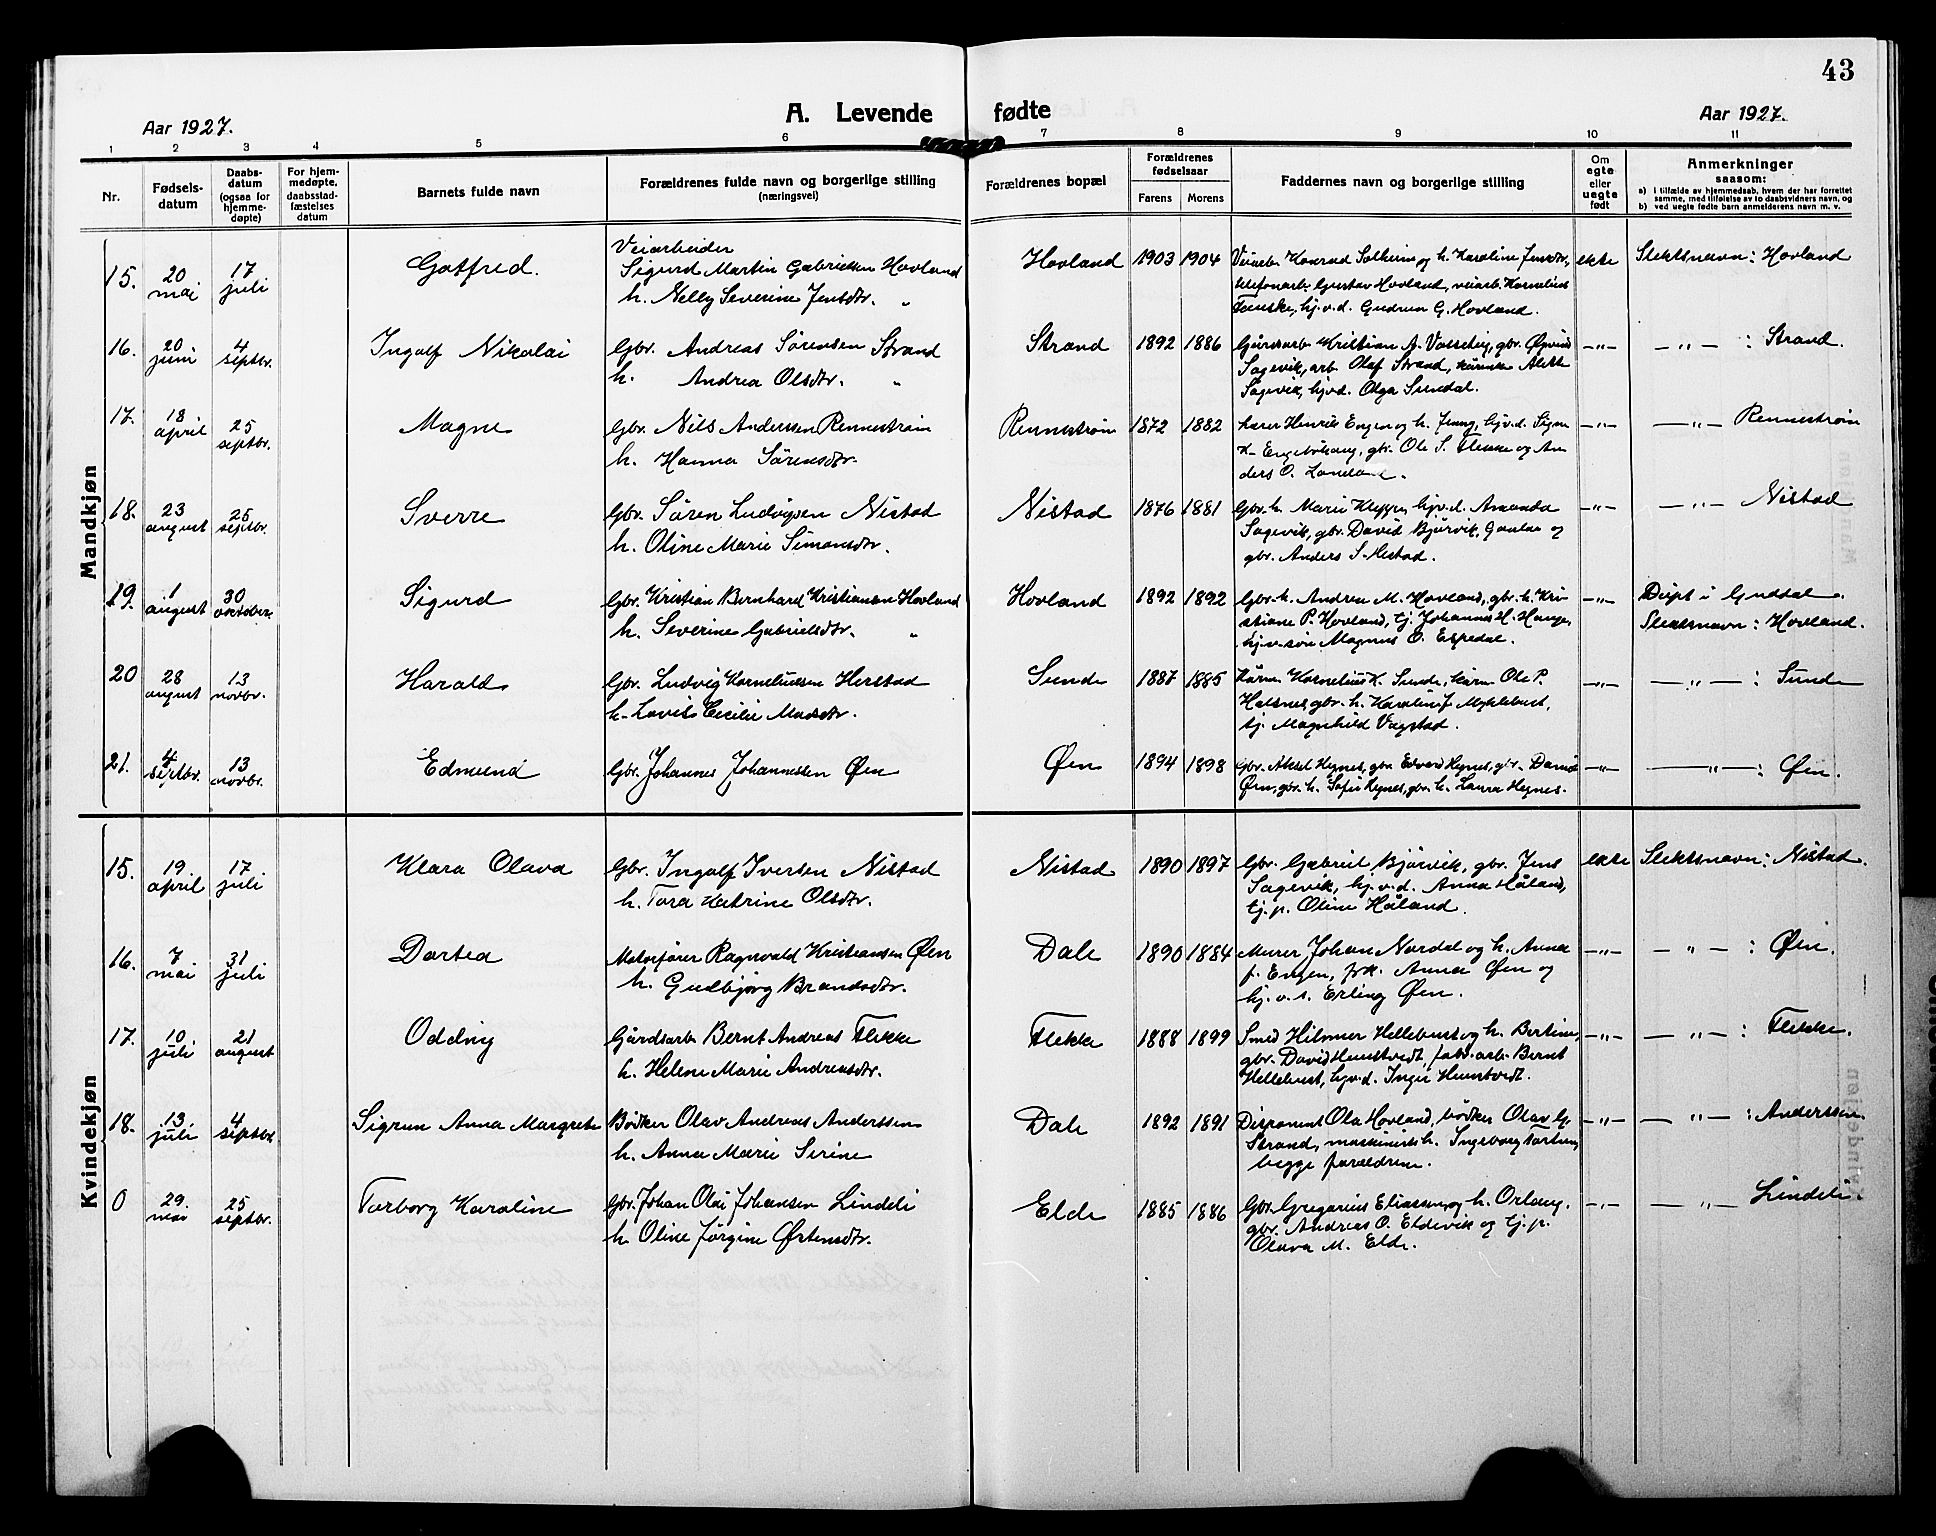 43
A. Levende fødte
Aar 1927.
Aar 1927.
1 2 3 4 5 6 7 8 9 10 11
Nr.
Fødsels-
datum
Daabs-
datum
(ogsaa for
hjemme-
døpte)
For hjem-
medøpte,
daabsstad-
fæstelses
datum
Barnets fulde navn
Forældrenes fulde navn og borgerlige stilling
(næringsvei)
Forældrenes bopæl
Forældrenes
fødselsaar
Farens Morens
Faddernes navn og borgerlige stilling
Om
egte
eller
uegte
født
Anmerkninger
saasom:
a) i tilfælde av hjemmedaab, hvem der har forrettet
samme, med tilføielse av to daabsvidners navn, og
b) ved uegte fødte barn anmelderens navn m. v.
Mandkjøn
15. 20 mai 17 juli Gotfred.
Veiarbeider
Sigurd Martin Gabrielsen Hovland
h. Nelly Severine Jensdtr. "
Hovland 1903 1904
Veiarb. Konrad Solheim og h. Karoline Jensdtr.,
telefonarb. Gustav Hovland, veiarb. Kornelius
hj.v.d. Gudrun G. Hovland.
ekte Slektsnavn: Hovland
16. 20 juni 4 septbr. Ingolf Nikolai
Gbr. Andreas Sørensen Strand
h. Andrea Olsdtr. "
Strand 1892 1886
Gårdsarb. Kristian A. Vasselvig, gbr. Øyvind
Sagevik, arb. Olaf Strand,
Sagevik, hjv.d. Olga Sundal.
-"- - " - : Strand.
17. 18 april 25 septbr. Magne
Gbr. Nils Anderssen Rennestrøin
h. Hanna Sørensdtr.
Rennestrøin 1872 1882
Lærer Henrik Engen og h. Jenny, hjv.d. Signe
gbr. Ole S. Flekke og An-
ders O. Landøen.
-"- - " - Rennestrøin
18. 23 august 25 septbr. Sverre
Gbr. Søren Ludvigsen Nistad
h. Oline Marie Simonsdtr.
Nistad 1876 1881
Gbr.h. Marie Kleppe, hjv.d. Amanda
Sagevik, gbr. David Bjørvik, Gaular og
gbr. Anders S. Nistad.
-"- - " - Nistad
19. 1 august 30 oktober Sigurd
Gbr. Kristian Bernhard Kristiansen Hovland
h. Severine Gabrielsdtr. "
Hovland 1892 1892
Gbr. h. Andrea M. Hovland, gbr. h. Kri-
stiane P. Hovland, tj. Johannes H. Hauge,
hj.v. søn Magnus O. Espedal.
-"- Døpt i Guddal.
Slektsnavn: Hovland.
20 28 august 13 novbr. Harald
Gbr. Ludvig Korneliussen Herstad
h. Lovise Cecilie Madsdtr.
Sunde 1887 1885
Kårm. Kornelius K. Sunde, kårm. Ole P.
Halsnes, gbr. h. Karoline J. Myklebust,
tj. Magnhild Vagstad.
-"- - " - : Sunde
21. 4 septbr. 13 novbr. Edmund
Gbr. Johannes Johannessen Øen
Øen 1894 1898
Gbr. Aksel Hegnes, gbr. Edvard Hegnes, gbr. David
Øen, gbr. h. Sofie Hegnes, gbr. h. Laura Hegnes.
-"- - " - : Øen.
Kvindekjøn
15. 19 april 17 juli Klara Olava
Gbr. Ingolf Iversen Nistad
h. Tora Katrine Olsdtr.
Nistad 1890 1897
Gbr. Gabriel Bjørvik, gbr. Jens
Sagevik, hj.v.d. Anna Håland,
tj.p. Oline Håland.
ekte Slektsnavn: Nistad.
16. 7 mai 31 juli Dortea
Motorfører Ragnvald Kristiansen Øen
h. Gudbjørg Brandsdtr.
Dale 1890 1884
Murer Johan Nordal og h. Anna
f. Engen, frk. Anna Øen og
hj.v.s. Erling Øen.
-"- - " - : Øen.
17. 10 juli 21 august Oddny
Gårdsarb. Bernt Andreas Flekke
h. Helene Marie Andreasdtr.
Flekke 1888 1899
Smed Hilmer Hellebust og h. Bertine,
gbr. David Hemstvedt, fabr. arb. Bernt
Hellebust, hjv.d. Inga Hemstvedt.
-"- - " - : Flekke.
18. 13 juli 4 septbr. Sigrun Anna Margrete
Bødker Olav Andreas Anderssen
h. Anna Marie Serine
Dale 1892 1891
Disponent Ola Hovland, bødker Olav G.
Strand, maskinists h. Ingeborg
begge forældrene.
-"- - " - : Anderssen.
0 29 mai 25 septbr. Torborg Karoline
Gbr. Johan Olai Johansen Lindeli
h. Oline Jørgine Østensdtr.
Elde 1885 1886
Gbr. Gregorius Eliassen og h. Orlaug,
gbr. Andreas O. Eldevik og tj.p.
Olava M. Elde.
-"- - " - Lindeli.